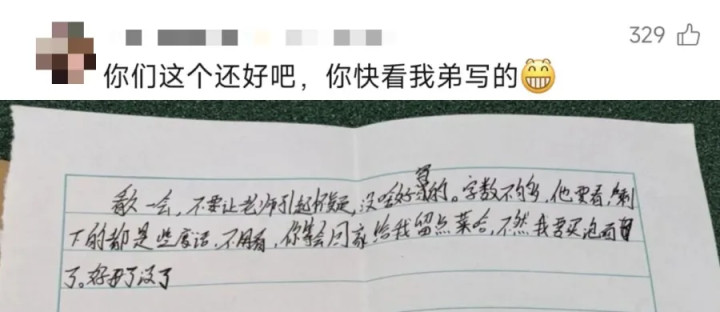 329
你们这个还好吧，你快看我弟写的
歇一会，不要让老师引起怀疑，没啥好写的。字数不够，他要看，剩
下的都是些废话，不用看，你等会回家给我留点菜合，不然我要买泡面
了。好了没了